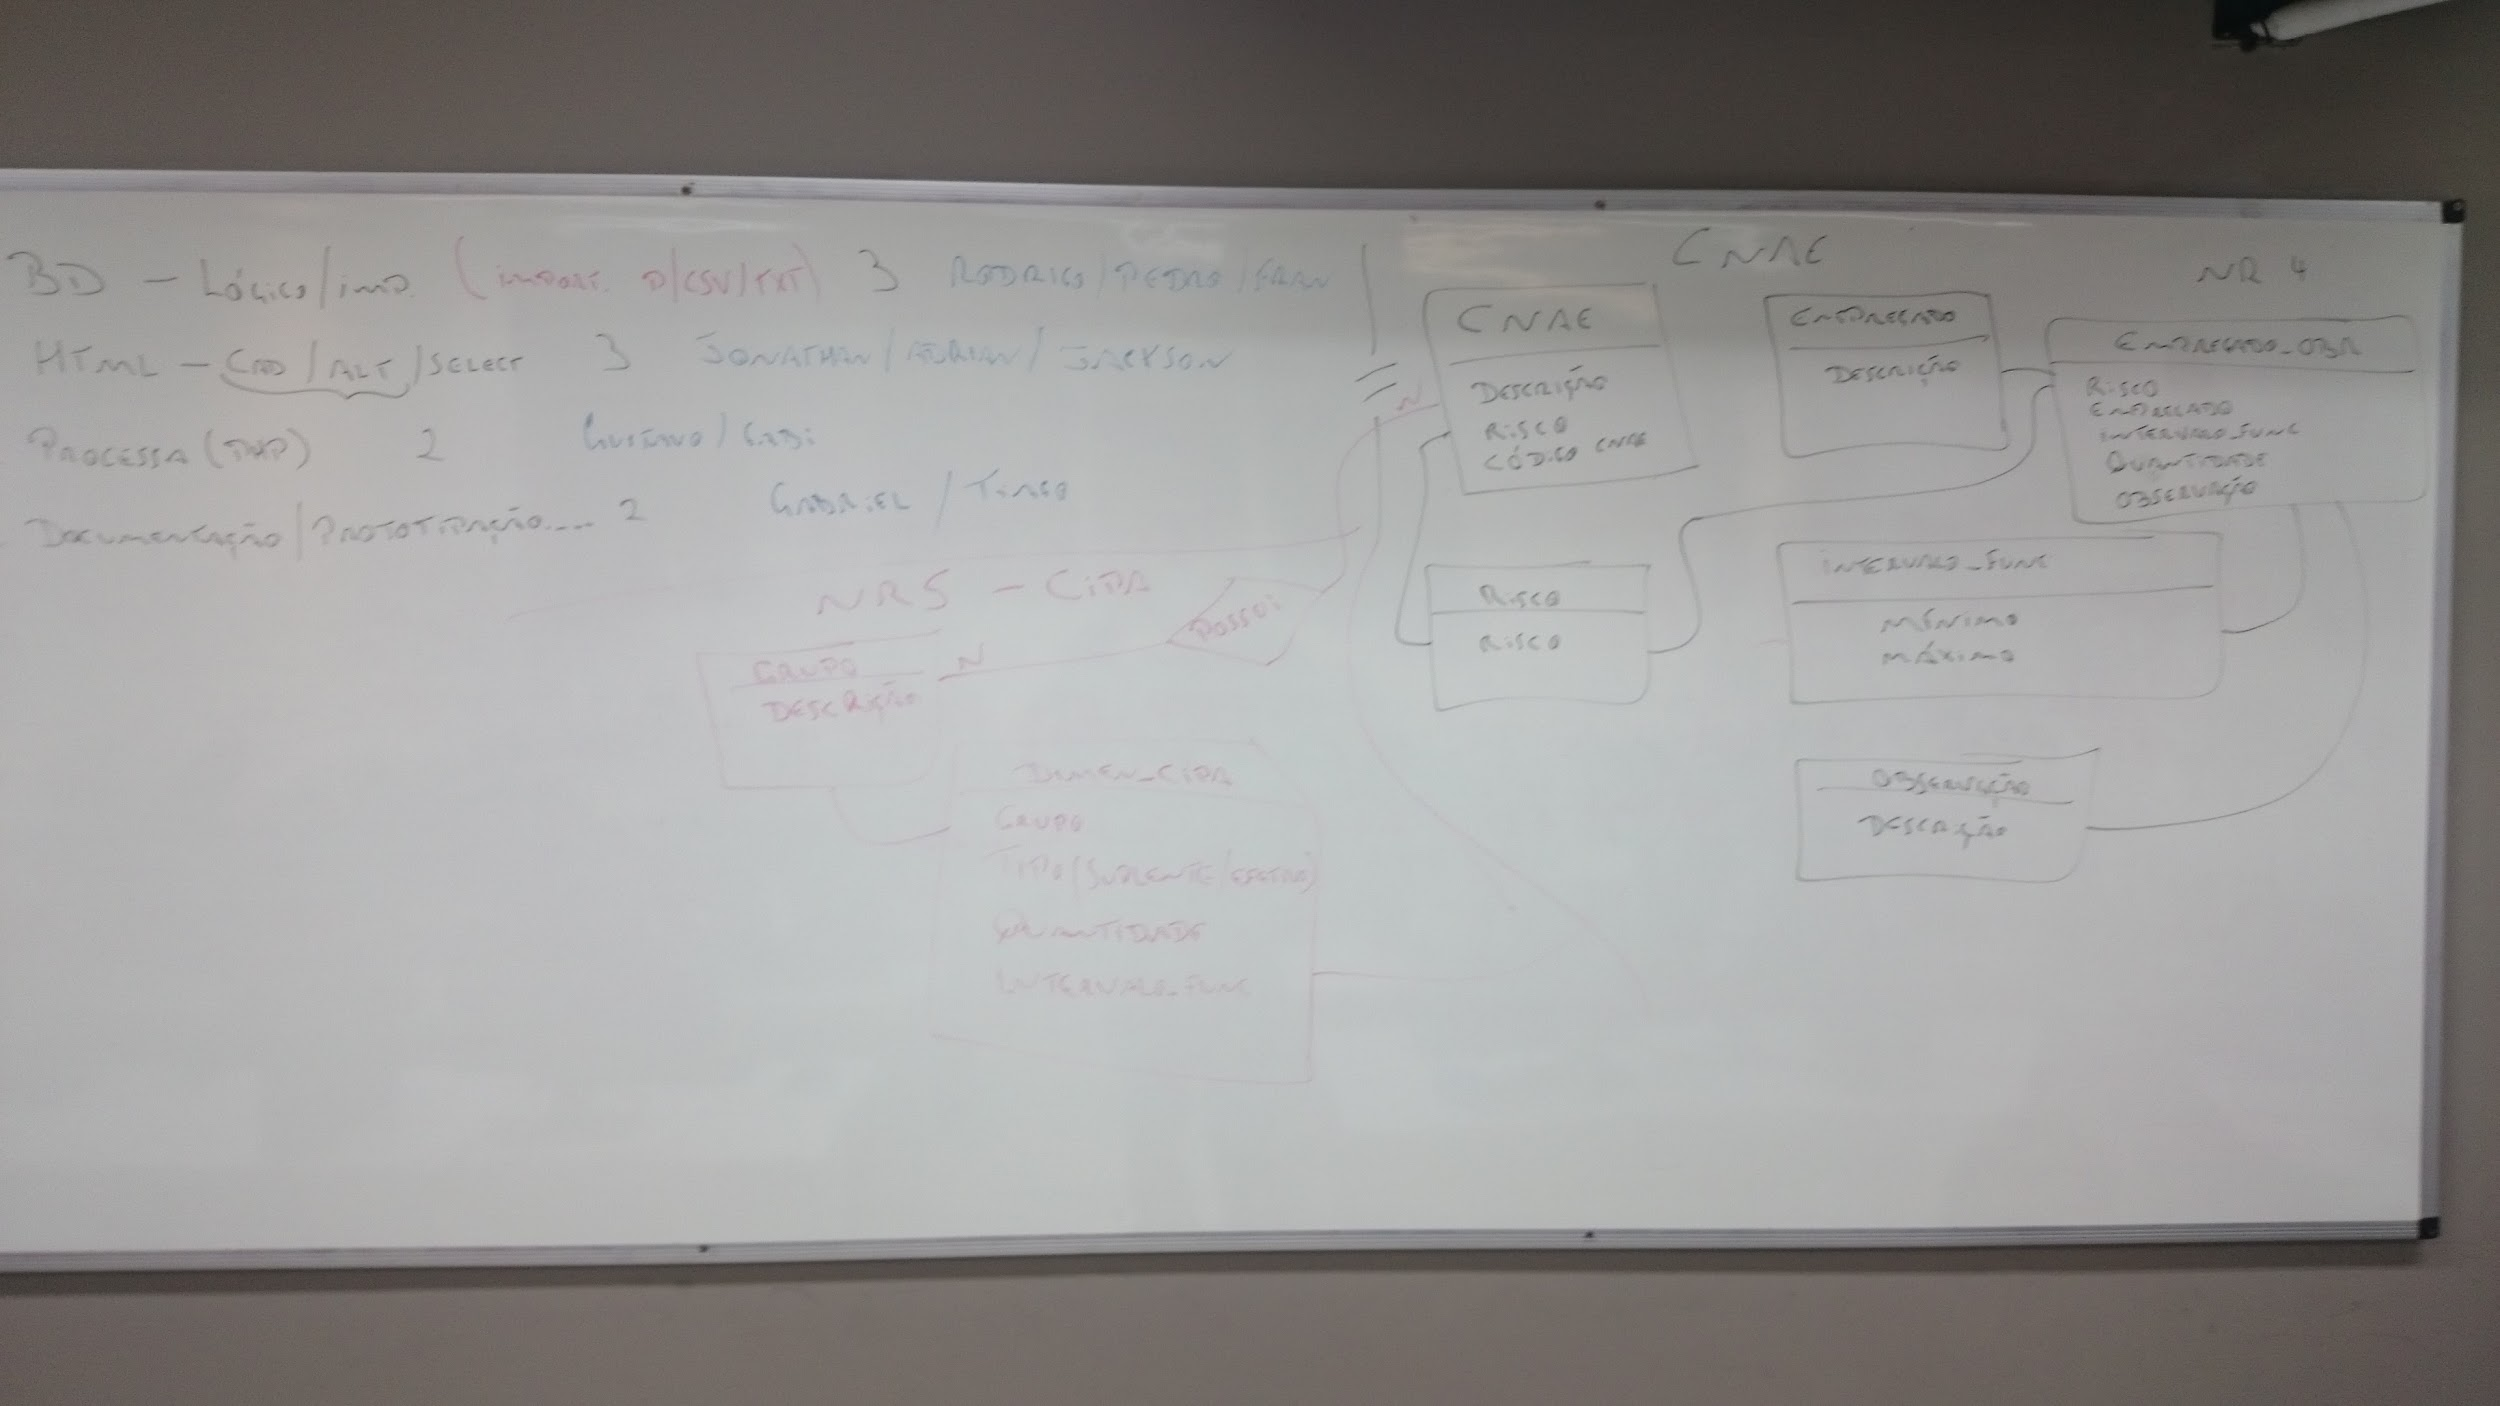 BD - Lógico/imp. (import. P/CSV/TXT) 3 RODRIGO/PEDRO/FRAN
HTML - CAD/ALT/SELECT 3 JONATHAN/ADRIAN/JACKSON
PROCESSA (PHP) 2 GUSTAVO/GABI
DOCUMENTAÇÃO/PROTOTIPAÇÃO.... 2 GABRIEL/TIAGO
NR5 - CIPA
GRUPO
DESCRIÇÃO
N
POSSUI
N
DIMEN_CIPA
GRUPO
TIPO (SUPLENTE/EFETIVO)
QUANTIDADE
INTERVALO_FUNC
CNAE
NR 4
CNAE
DESCRIÇÃO
RISCO
CÓDIGO CNAE
EMPREGADO
DESCRIÇÃO
EMPREGADO_OBR
RISCO
EMPREGADO
INTERVALO_FUNC
QUANTIDADE
OBSERVAÇÃO
RISCO
RISCO
INTERVALO_FUNC
MÍNIMO
MÁXIMO
OBSERVAÇÃO
DESCRIÇÃO